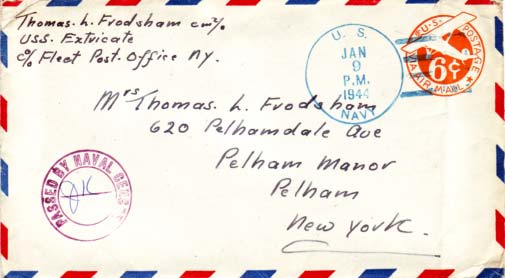 Thomas. L. Frodsham CM2/c
USS. Extricate
c/o Fleet Post. Office NY.
U. S.
JAN
9
P.M.
1944
NAVY
U.S. POSTAGE
6¢
VIA AIR MAIL
Mrs Thomas. L. Frodsham
620 Pelhamdale Ave
Pelham Manor
Pelham
New York.
PASSED BY NAVAL CENSOR